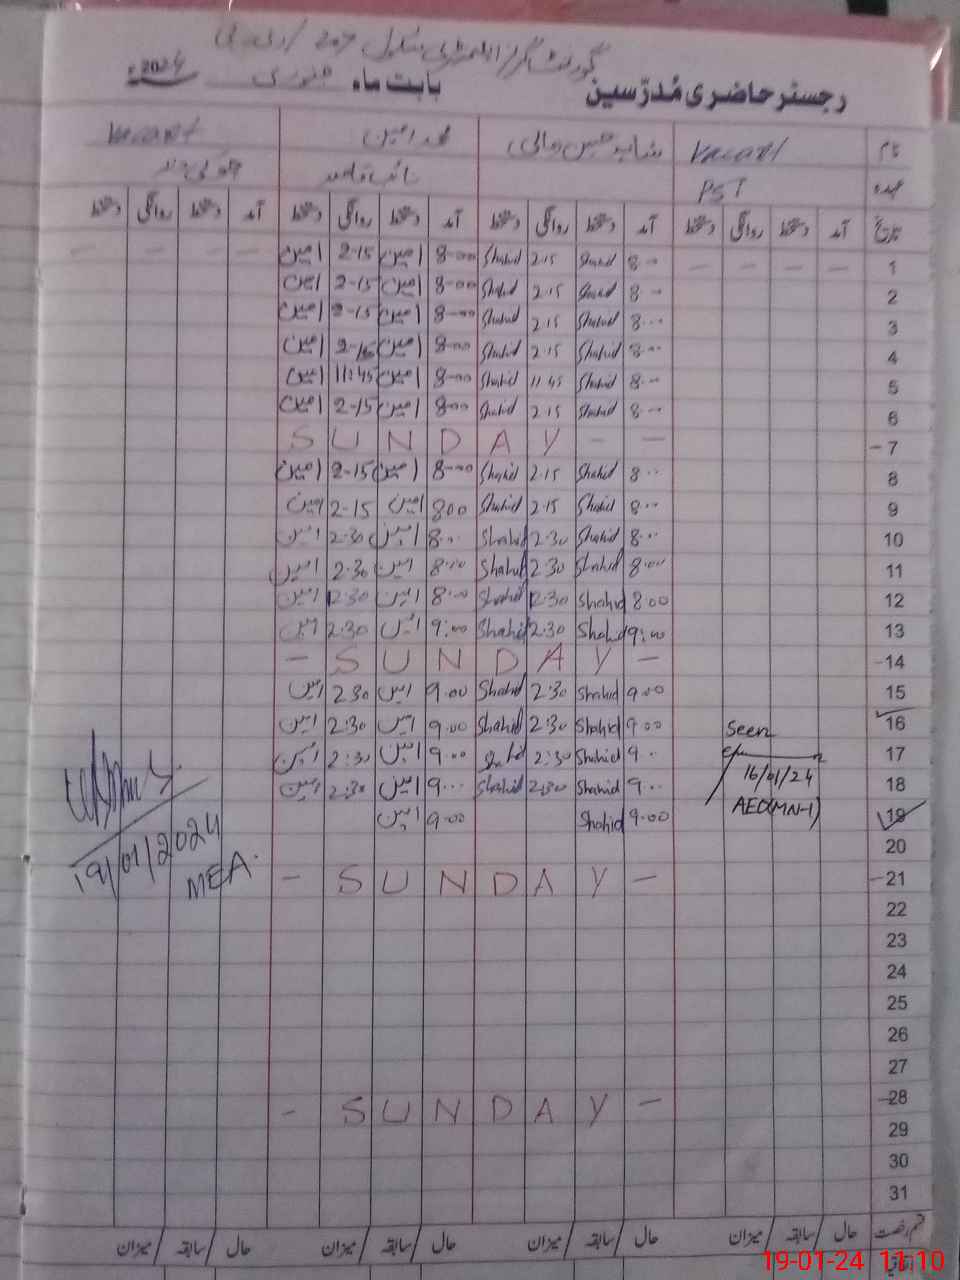 گورنمنٹ گرلز ایلمنٹری سکول 207 / ای بی
رجسٹر حاضری مُدرّسین بابت ماہ جنوری 2024ء
نام Vacant شاہد حسین مالی محمد امین Vacant
عہدہ PST نائب قاصد چوکیدار
تاریخ آمد دستخط روانگی دستخط آمد دستخط روانگی دستخط آمد دستخط روانگی دستخط آمد دستخط روانگی دستخط
1 — — — — 8-00 Shahid 2.15 Shahid 8-00 امین 2-15 امین — — — —
2 8-00 Shahid 2.15 Shahid 8-00 امین 2-15 امین
3 8-00 Shahid 2.15 Shahid 8-00 امین 2-15 امین
4 8-00 Shahid 2.15 Shahid 8-00 امین 2-15 امین
5 8-00 Shahid 11.45 Shahid 8-00 امین 11:45 امین
6 8-00 Shahid 2.15 Shahid 800 امین 2-15 امین
7 SUNDAY - -
8 8-00 Shahid 2.15 Shahid 8-00 امین 2-15 امین
9 8-00 Shahid 2.15 Shahid 800 امین 2-15 امین
10 8-00 Shahid 2:30 Shahid 8:00 امین 2:30 امین
11 8:00 Shahid 2:30 Shahid 8:00 امین 2:30 امین
12 8:00 Shahid 2:30 Shahid 8:00 امین 2:30 امین
13 9:00 Shahid 2:30 Shahid 9:00 امین 2:30 امین
14 - SUNDAY -
15 9.00 Shahid 2:30 Shahid 9.00 امین 2:30 امین
16 9.00 Shahid 2:30 Shahid 9.00 امین 2:30 امین
Seen
17 9.00 Shahid 2:30 Shahid 9.00 امین 2:30 امین
16/01/24
18 9.00 Shahid 2:30 Shahid 9.00 امین 2:30 امین
AEO(MN-1)
19 9.00 Shahid 9.00 امین
19/01/2024
MEA.
20
21 - SUNDAY -
22
23
24
25
26
27
28 - SUNDAY -
29
30
31
قسم رخصت حال / سابقہ / میزان حال / سابقہ / میزان حال / سابقہ / میزان حال / سابقہ / میزان
19-01-24 11:10